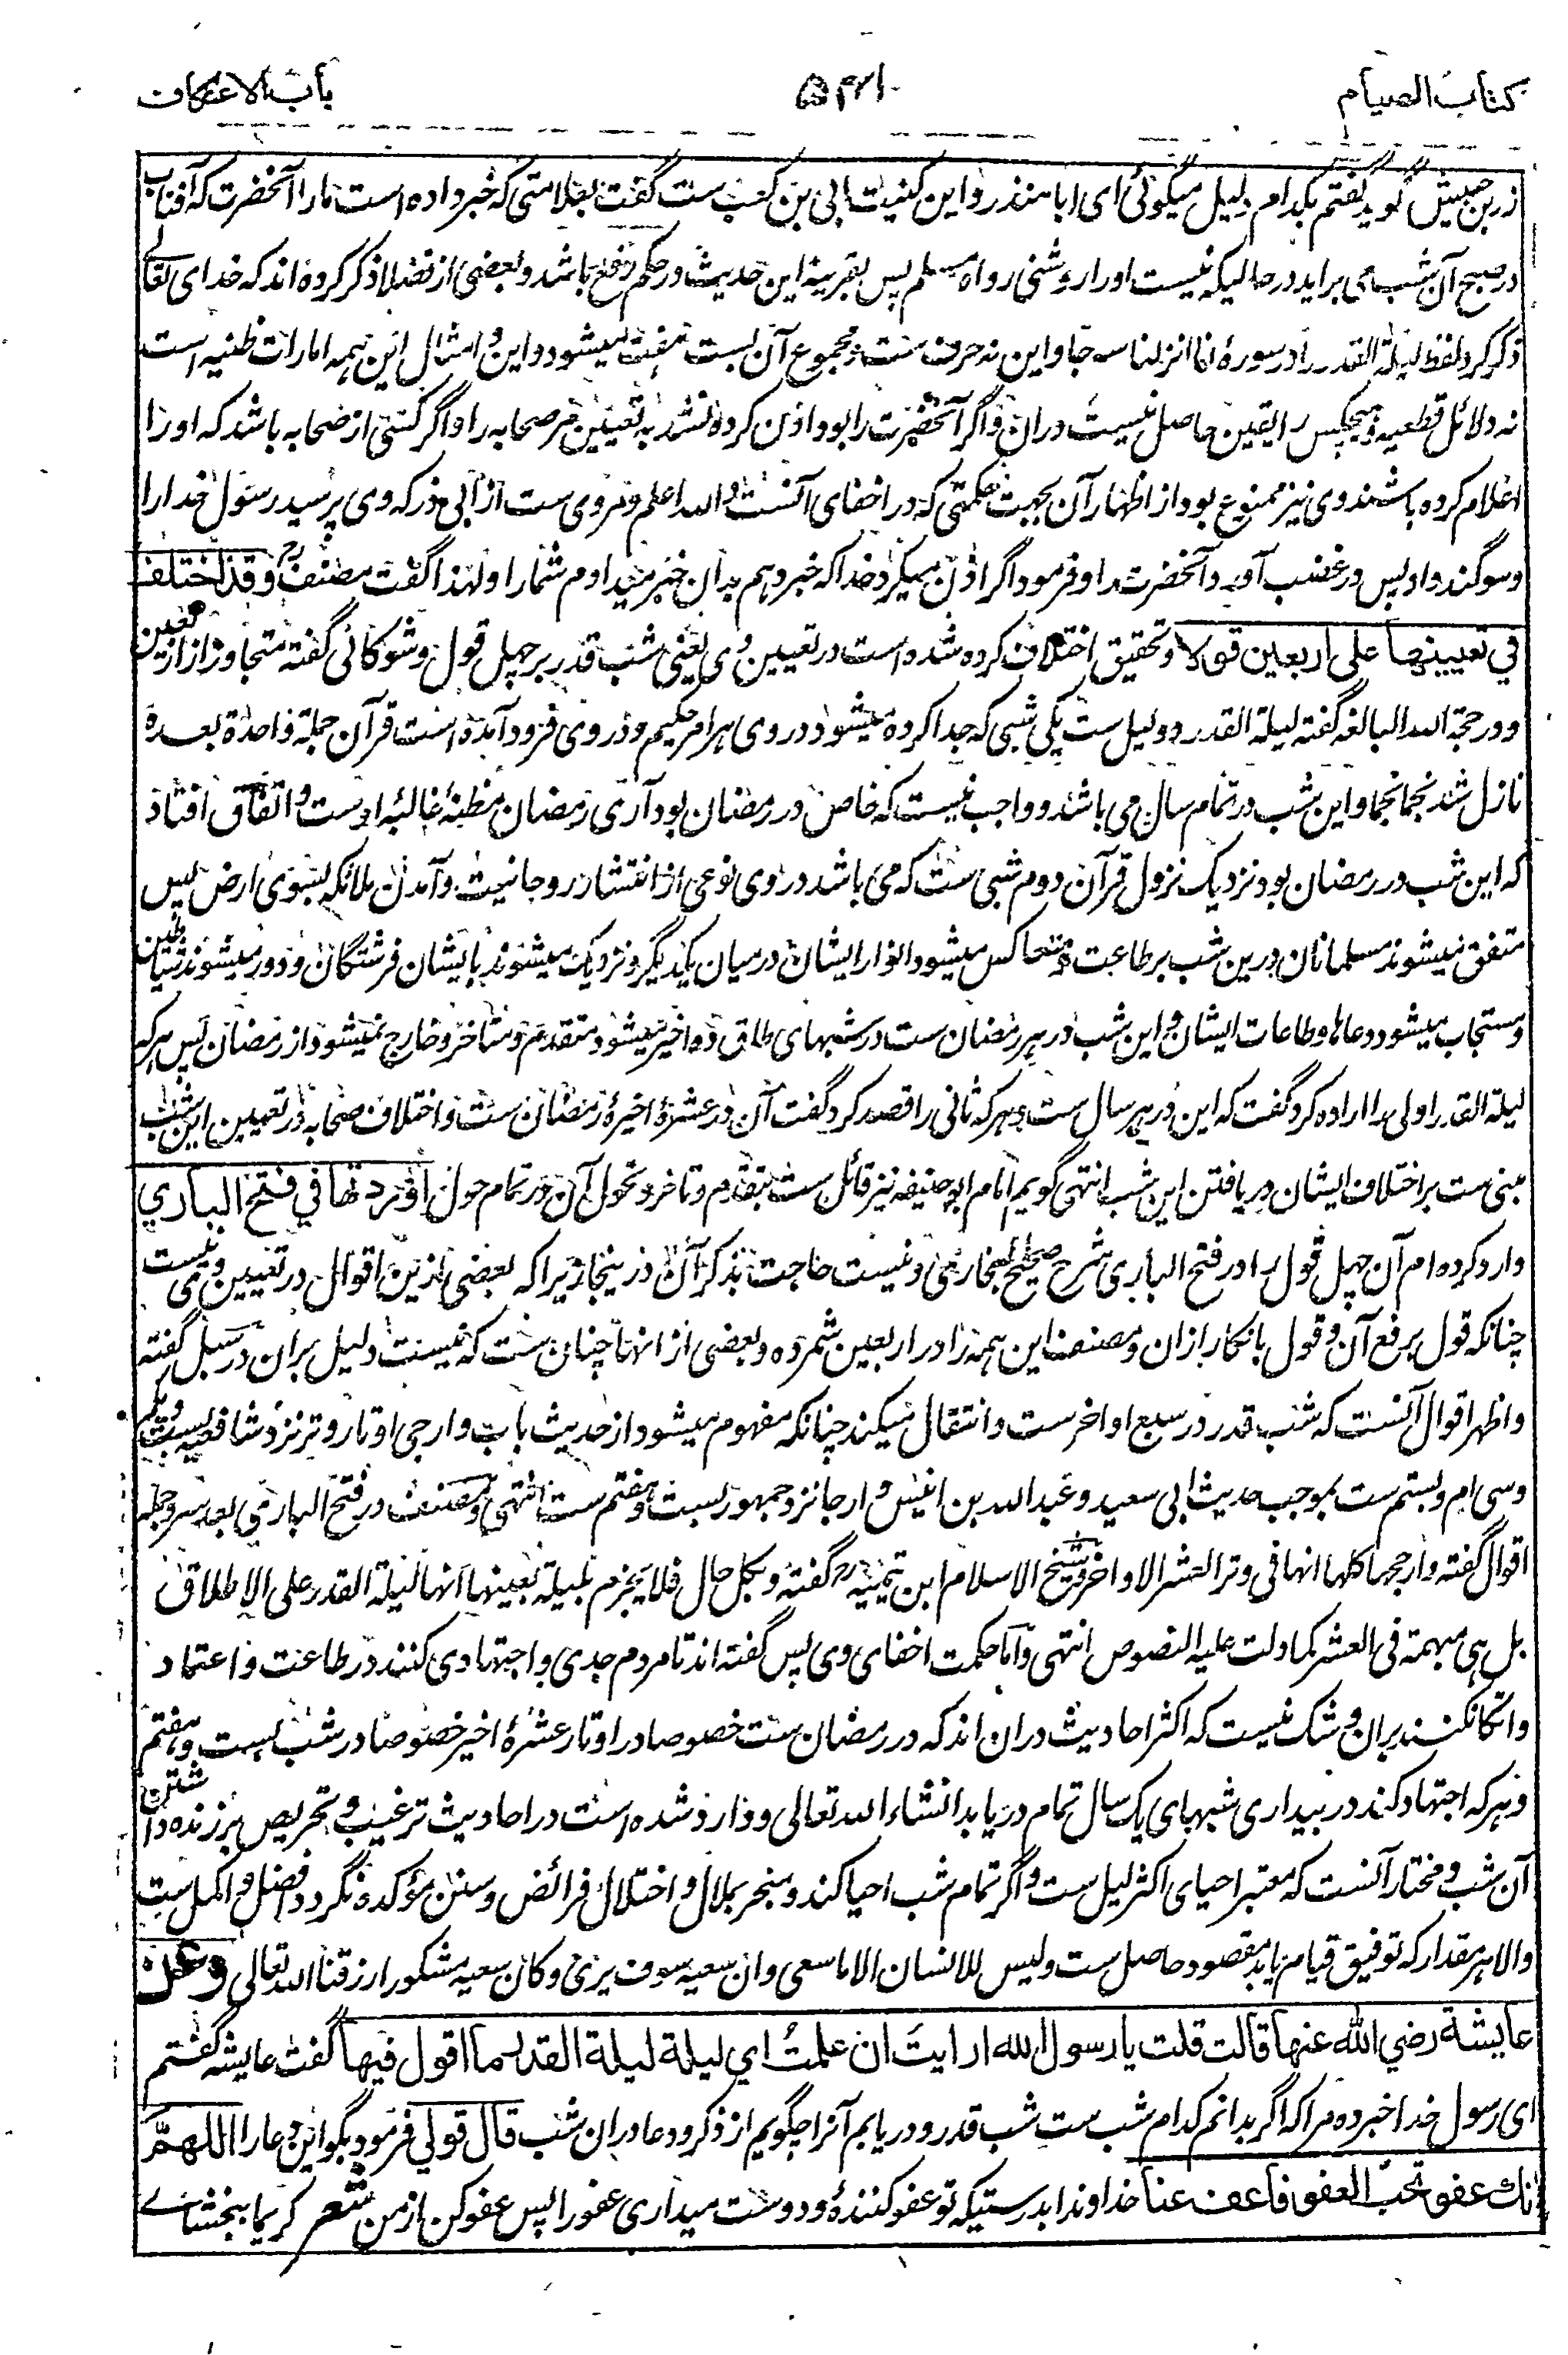 كتاب الصيام
باب الاعتكاف
زر بن حبیش گوید گفتم بکدام دلیل میگوئی ای ابا منذر و این کنیت ابی بن کعب ست گفت بعلامتی که خبر داده است ما را آنحضرت که آفتاب
در صبح آن شب می براید در حالیکه نیست او را روشنی رواه مسلم پس بقرینهٔ این حدیث در حکم رفع باشد و بعضی از فضلا ذکر کرده اند که خدای تعالے
ذکر کرد لفظ لیلة القدر را در سورهٔ انا انزلنا سه جا و این نه حرف ست و مجموع آن بست و هفت میشود و این و امثال این همه امارات ظنیه است
نه دلائل قطعیه و هیچکس را یقین حاصل نیست دران و اگر آنحضرت را بود اذن کرده نشد به تعیین مر صحابه را و اگر کسی از صحابه باشد که او را
اعلام کرده باشند وی نیز ممنوع بود از اظهار آن بجهت حکمتی که در اخفای آنست و الله اعلم و مروی ست از ابی ذر که وی پرسید رسول خدا را
و سوگند داد پس در غضب آورد آنحضرت را و فرمود اگر اذن میکرد خدا که خبر دهم بدان خبر میدادم شما را و لهذا گفت مصنف رح وقد اختلف
في تعيينها على اربعين قولا و تحقیق اختلاف کرده شده است در تعیین وی یعنی شب قدر بر چهل قول و شوکانی گفته متجاوز از اربعین
و در حجة الله البالغه گفته لیلة القدر دو لیل ست یکی شبی که جدا کرده میشود در وی هر امر حکیم و در وی فرود آمده است قرآن جملة واحدة بعده
نازل شد نجما نجما و این شب در تمام سال می باشد و واجب نیست که خاص در رمضان بود آری رمضان مظنهٔ غالبهٔ اوست و اتفاق افتاد
که این شب در رمضان بود نزدیک نزول قرآن دوم شبی ست که می باشد در وی نوعی از انتشار روحانیت و آمدن ملائکه بسوی ارض پس
متفق میشوند مسلمانان درین شب بر طاعت و متعاکس میشود انوار ایشان درمیان یکدیگر و نزدیک میشوند بایشان فرشتگان و دور میشوند شیاطین
و مستجاب میشود دعاها و طاعات ایشان و این شب در هر رمضان ست در شبهای طاق دهٔ اخیر میشود متقدم و متاخر و خارج نمیشود از رمضان پس هرکه
لیلة القدر اولی را اراده کرد گفت که این در هر سال ست و هرکه ثانی را قصد کرد گفت آن در عشرهٔ اخیرهٔ رمضان ست و اختلاف صحابه در تعیین این شب
مبنی ست بر اختلاف ایشان در یافتن این شب انتهی گویم امام ابو حنیفه نیز قائل ست بتقدم و تاخر و تحول آن در تمام حول اوردتها في فتح الباري
وارد کرده ام آن چهل قول را در فتح الباری شرح صحیح بخاری و نیست حاجت بذکر آن درینجا زیرا که بعضی ازین اقوال در تعیین وی نیست
چنانکه قول برفع آن و قول بانکار ازان و مصنف این همه را در اربعین شمرده و بعضی از انها چنان ست که نیست دلیل بران در سبل گفته
و اظهر اقوال آنست که شب قدر در سبع اواخر ست و انتقال میکند چنانکه مفهوم میشود از حدیث باب و ارجی اوتار وتر نزد شافعیه بست و یکم
و سی ام و بستم ست بموجب حدیث ابی سعید و عبد الله بن انیس و ارجا نزد جمهور بست و هفتم ست انتهی و مصنف در فتح الباری بعد سرد جمله
اقوال گفته وارجحها كلها انها في وتر العشر الاواخر و شیخ الاسلام ابن تیمیه رح گفته وبكل حال فلا يجزم بليلة بعينها انها ليلة القدر على الاطلاق
بل هي مبهمة في العشر كما دلت عليه النصوص انتهی و اما حکمت اخفای وی پس گفته اند تا مردم جدی و اجتهادی کنند در طاعت و اعتماد
و اتکا نکنند بران و شک نیست که اکثر احادیث دران اند که در رمضان ست خصوصا در اوتار عشرهٔ اخیر خصوصا در شب بست و هفتم
و هرکه اجتهاد کند در بیداری شبهای یک سال تمام دریابد انشاء الله تعالی و وارد شده است در احادیث ترغیب و تحریص بر زنده داشتن
آن شب و مختار آنست که معتبر احیای اکثر لیل ست و اگر تمام شب احیا کند و منجر بملال و اختلال فرائض و سنن مؤکده نگردد افضل و اکمل ست
والا هر مقدار که توفیق قیام یابد مقصود حاصل ست وليس للانسان الا ما سعى وان سعيه سوف يرى وكان سعيه مشكورا رزقنا الله تعالى وعن
عايشة رضي الله عنها قالت قلت يا رسول الله ارايت ان علمت اي ليلة ليلة القدر ما اقول فيها گفت عایشه گفتم
ای رسول خدا خبر ده مرا که اگر بدانم کدام شب ست شب قدر و دریابم آنرا چگویم از ذکر و دعا دران شب قال قولي فرمود بگو این دعا را اللهم
انك عفو تحب العفو فاعف عنا خداوندا بدرستیکه تو عفو کنندهٔ و دوست میداری عفو را پس عفو کن از من شعر کریما ببخشاے